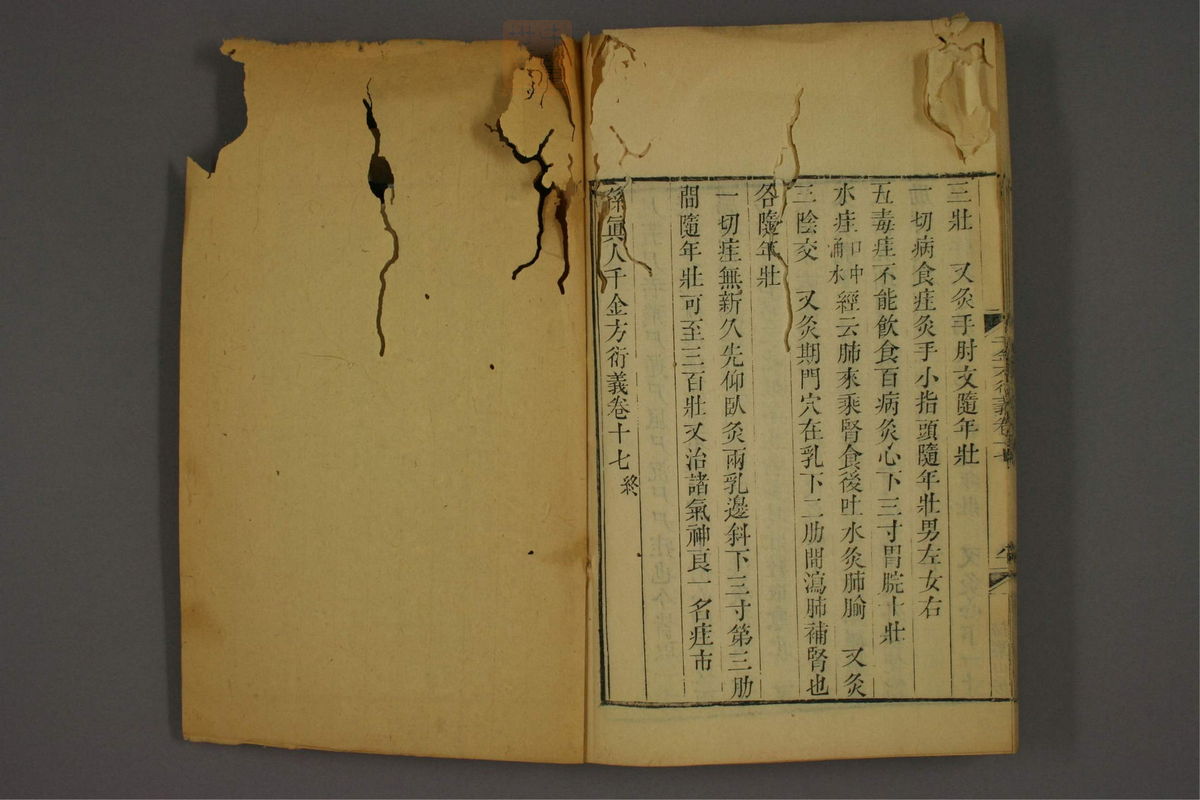 三壯　又灸手肘文隨年壯
一切病食疰灸手小指頭隨年壯男左女右
五毒疰不能飲食百病灸心下三寸胃脘十壯
水疰口中涌水經云肺來乘腎食後吐水灸肺腧　又灸
三陰交　又灸期門穴在乳下二肋間瀉肺補腎也
各隨年壯
一切疰無新久先仰臥灸兩乳邊斜下三寸第三肋
間隨年壯可至三百壯又治諸氣神良一名疰市
孫真人千金方衍義卷十七終